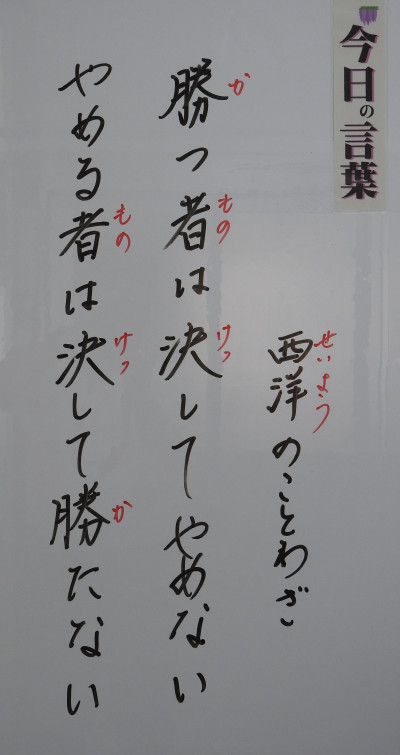 今日の言葉
西洋のことわざ
せいよう
勝つ者は決してやめない
か
もの
けっ
やめる者は決して勝たない
もの
けっ
か